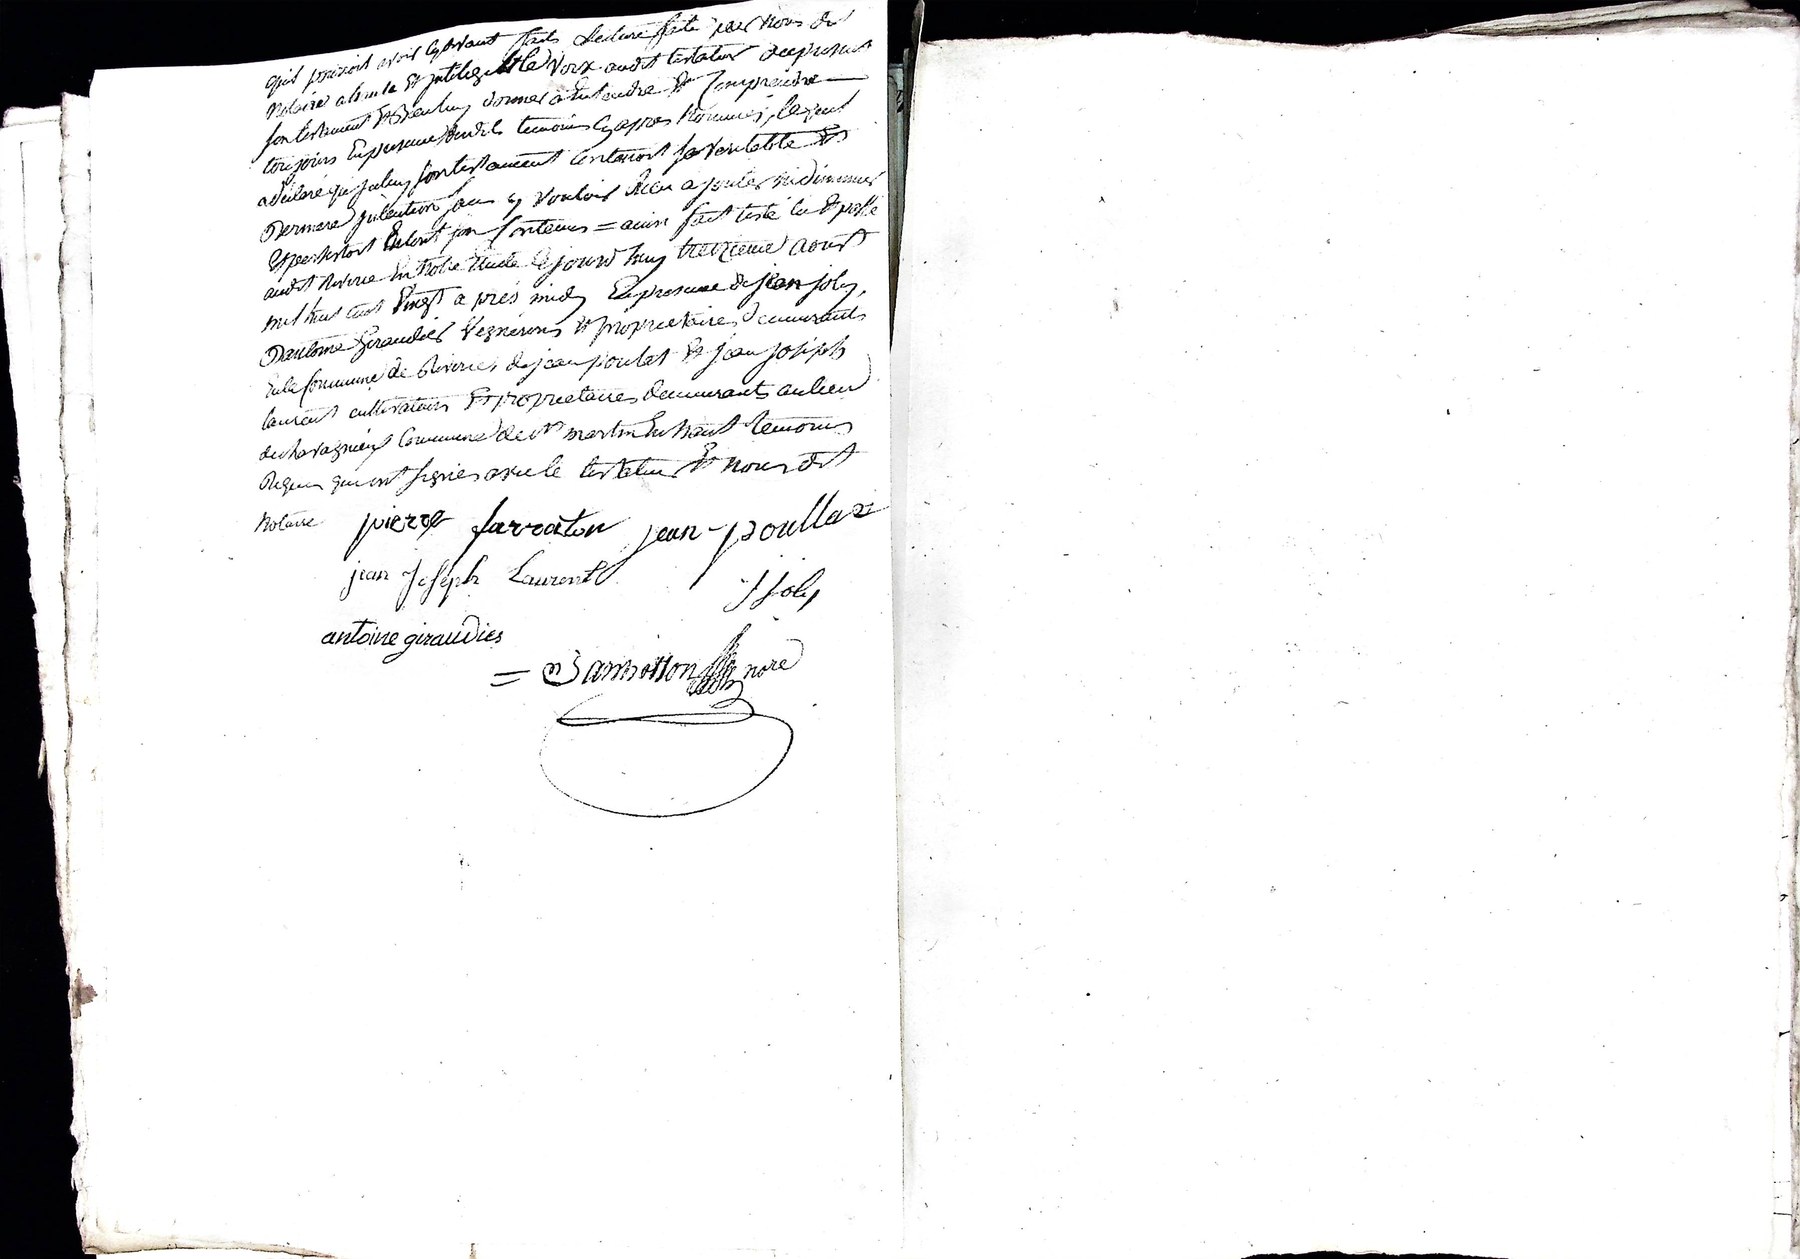 quil pouroit avoir cydevant faits Lecture faite par Nous dit
Notaire a haute et inteligible Voix audit testateur du present
son testament et a celuy donner a Entendre et Comprendre
toujours En presence desdits temoins cy apres Nommés, lequel
a déclaré que celuy son testament Contenoit sa veritable et
Derniere intention sans y vouloir Rien ajouter ni diminuer
et persistoit En tout son Contenus = ainsi fait testé lu et passé
audit Riverie En Notre Etude Cejourd'huy treizieme aoust
mil huit cent Vingt a prés midy En presence de jean joly,
D'antoine Giraudier Vignerons et proprietaires demeurants
En la Commune de Riverie, de jean poulat et jean joseph
laurent cultivateurs et proprietaires demeurants au lieu
de Commune de st martin En haut temoins
Requis qui ont signés avec le testateur Et nous dit
Notaire pierre farraton jean poullat
jean Joseph Laurent
J Joly
antoine giraudier
= nore